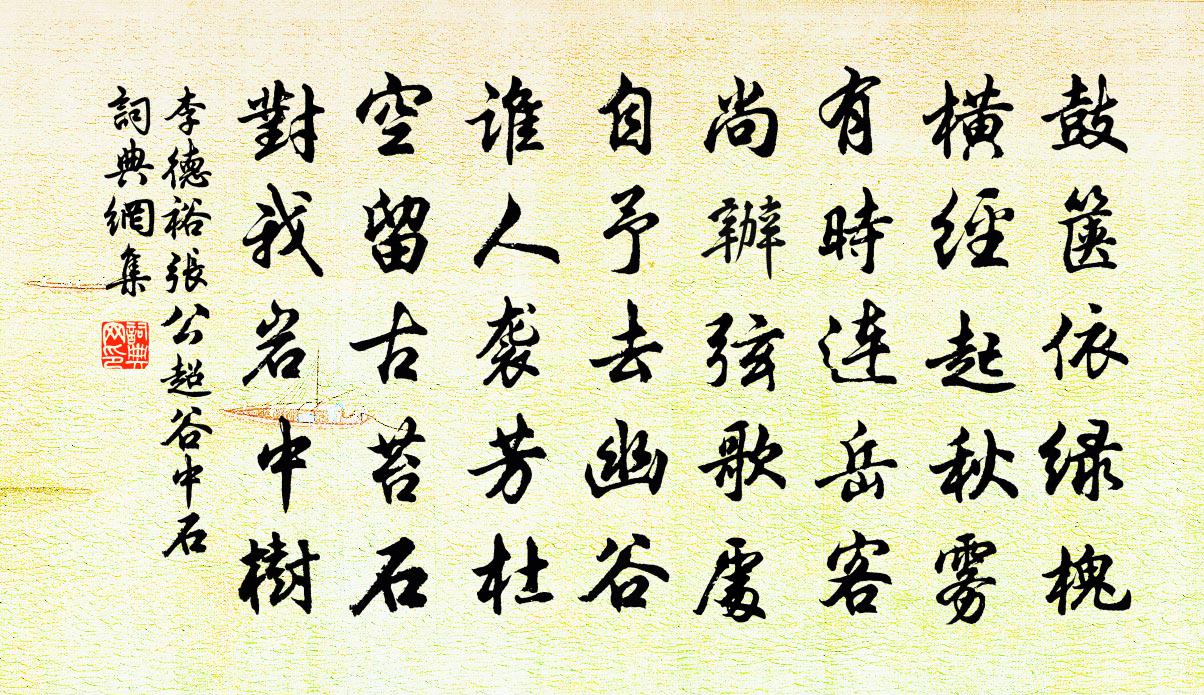 鼓箧依绿槐
橫經起秋雾
有時连岳客
尚辦弦歌處
自予去幽谷
谁人袭芳杜
空留古苔石
對我岩中樹
李德裕張公超谷中石
詞典網集
詞典網印